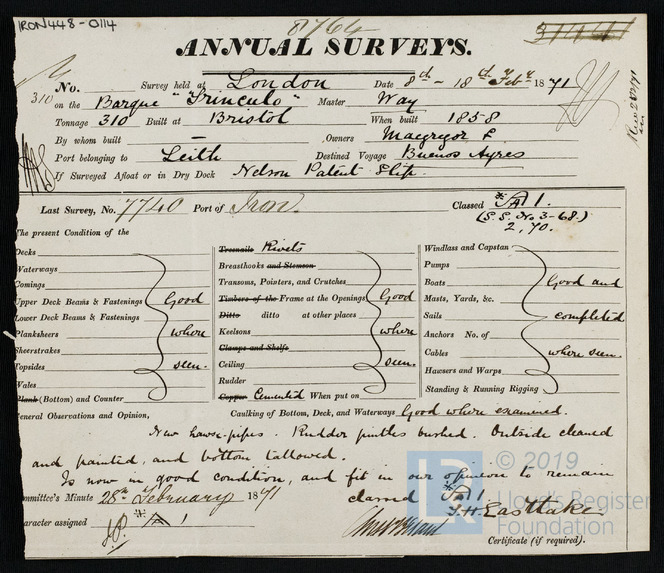 IRON448-0114
8764
31441
ANNUAL SURVEYS.
No. Survey held at London Date 8th - 18th Feby 1871
310 on the Barque "Trinculo" Master Way
Tonnage 310 Built at Bristol When built 1858
By whom built — Owners Macgregor &
Port belonging to Leith Destined Voyage Buenos Ayres
If Surveyed Afloat or in Dry Dock Nelson Patent Slip.
Last Survey, No. 7740 Port of Iron. Classed A 1.
(S.S. No 3-68.)
2,70.
The present Condition of the
Decks
Waterways
Comings
Upper Deck Beams & Fastenings
Lower Deck Beams & Fastenings
Planksheers
Sheerstrakes
Topsides
Wales
Plank (Bottom) and Counter
Good
where
seen.
Treenails Rivets
Breasthooks and Stemson
Transoms, Pointers, and Crutches
Timbers of the Frame at the Openings
Ditto ditto at other places
Keelsons
Clamps and Shelfs
Ceiling
Rudder
Copper Cemented When put on
Good
where
seen.
Windlass and Capstan
Pumps
Boats
Masts, Yards, &c.
Sails
Anchors No. of
Cables
Hawsers and Warps
Standing & Running Rigging
Good and
completed
where seen
General Observations and Opinion, Caulking of Bottom, Deck, and Waterways Good where examined.
New hawse-pipes. Rudder pintles bushed. Outside cleaned
and painted, and bottom tallowed.
Is now in good condition, and fit in our opinion to remain
classed A 1
Committee's Minute 28th February 1871
Character assigned A 1
J.H. Eastlake.
Certificate (if required).
LR © 2019
Lloyd's Register
Foundation